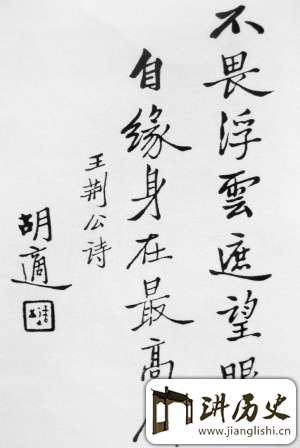 不畏浮雲遮望眼
自缘身在最高
王荆公诗
胡適
讲历史
www.jianglishi.cn